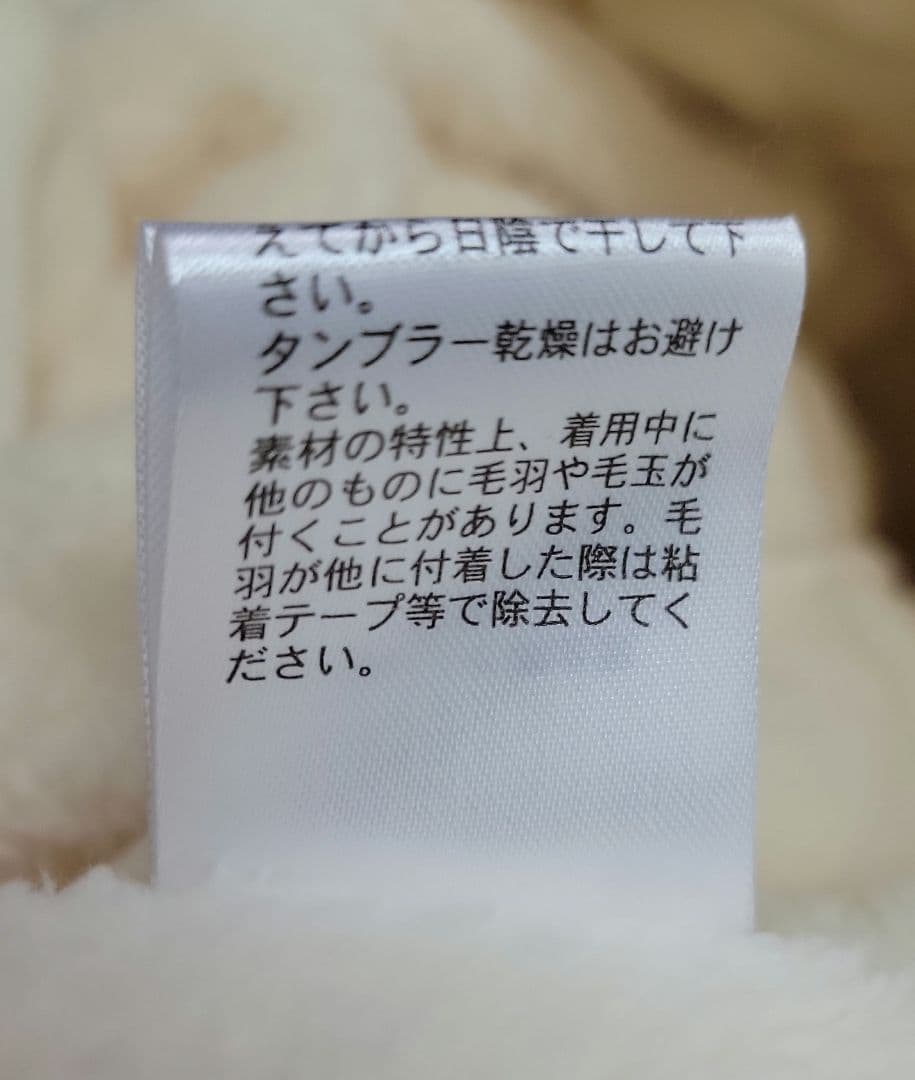 えてから日陰で干して下
さい。
タンブラー乾燥はお避け
下さい。
素材の特性上、着用中に
他のものに毛羽や毛玉が
付くことがあります。毛
羽が他に付着した際は粘
着テープ等で除去してく
ださい。